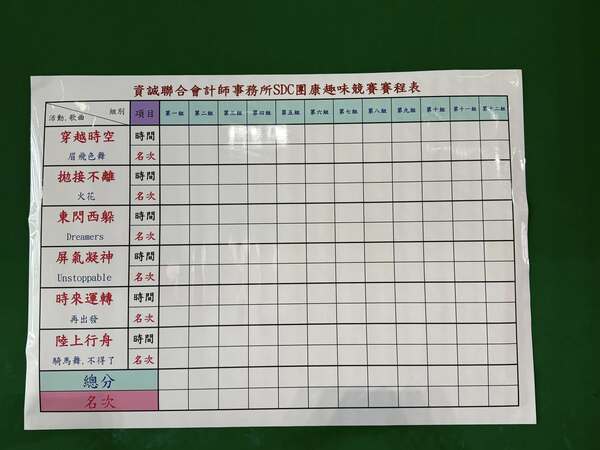 資誠聯合會計師事務所SDC團康趣味競賽賽程表
組別
活動、歌曲
項目 第一組 第二組 第三組 第四組 第五組 第六組 第七組 第八組 第九組 第十組 第十一組 第十二組
穿越時空 時間
眉飛色舞 名次
拋接不離 時間
火花 名次
東閃西躲 時間
Dreamers 名次
屏氣凝神 時間
Unstoppable 名次
時來運轉 時間
再出發 名次
陸上行舟 時間
騎馬舞、不得了 名次
總分
名次